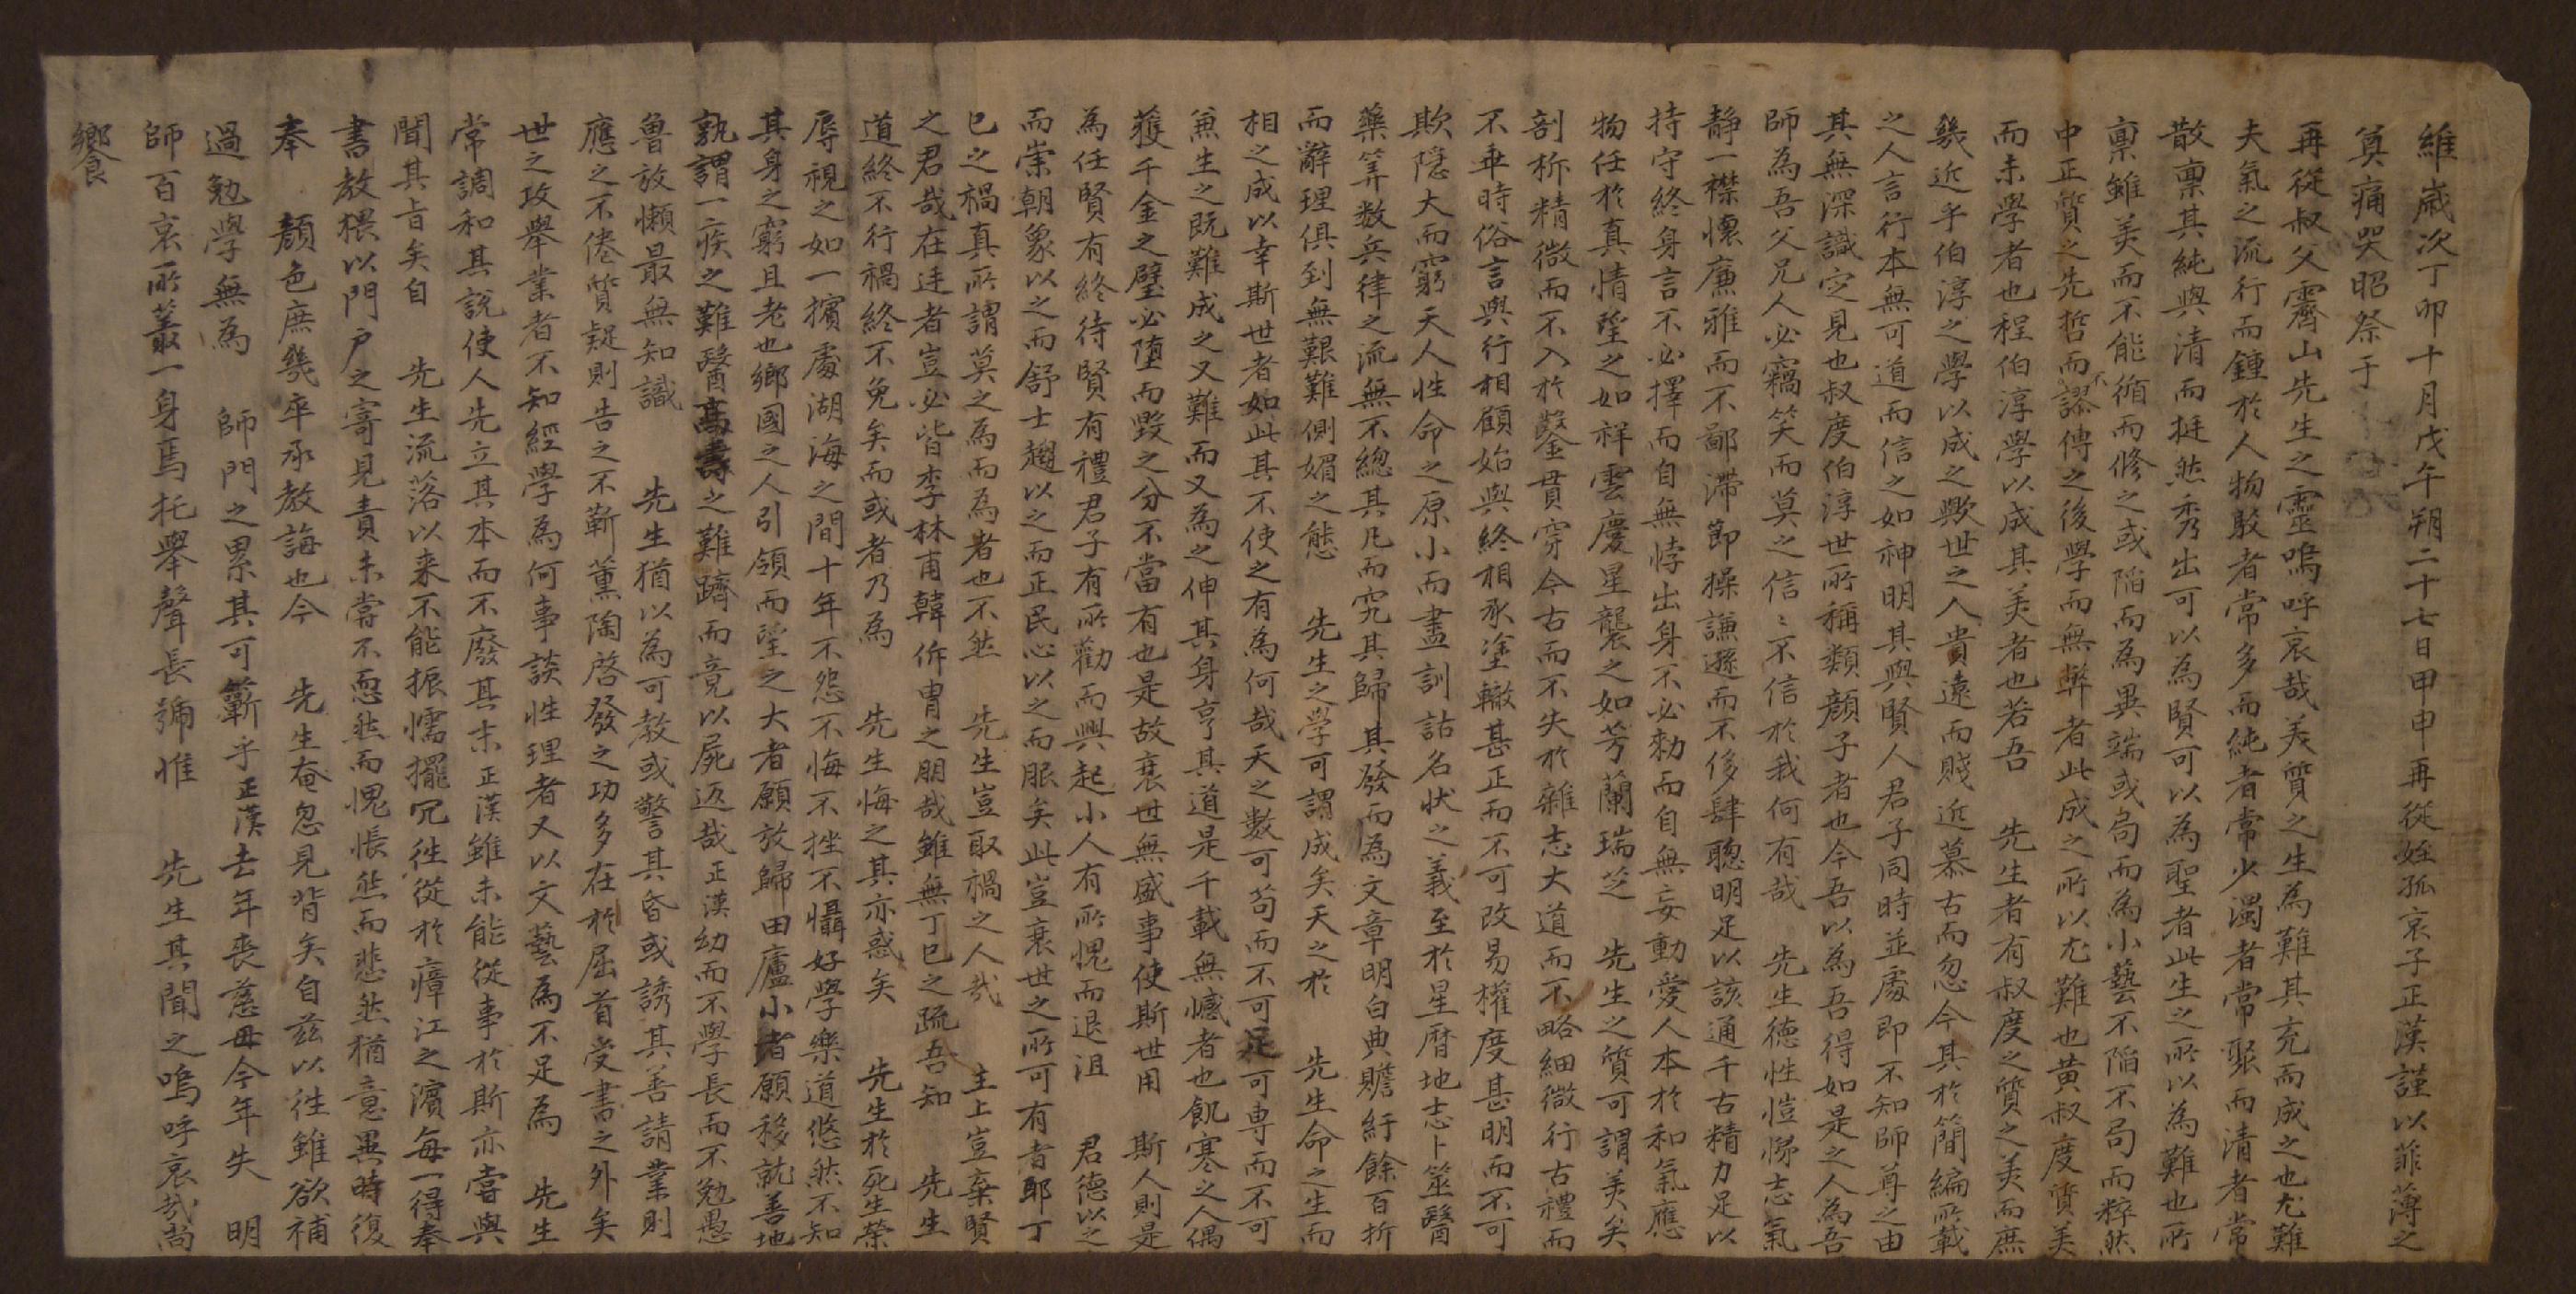 維歲次丁卯十月戊午朔二十七日甲申再從姪孤哀子正漢謹以菲薄之
奠痛哭昭祭于
再從叔父霽山先生之靈嗚呼哀哉美質之生為難其充而成之也尤難
夫氣之流行而鍾於人物駁者常多而純者常少濁者常聚而清者常
散稟其純與清而挺然秀出可以為賢可以為聖者此生之所以為難也所
稟雖美而不能循而修之或陷而為異端或局而為小藝不陷不局而粹然
中正質之先哲而不謬傳之後學而無弊者此成之所以尤難也黃叔度質美
而未學者也程伯淳學以成其美者也若吾 先生者有叔度之質之美而庶
幾近乎伯淳之學以成之歟世之人貴遠而賤近慕古而忽今其於簡編所載
之人言行本無可道而信之如神明其與賢人君子同時並處即不知師尊之由
其無深識定見也叔度伯淳世所稱類顏子者也今吾以為吾得如是之人為吾
師為吾父兄人必竊笑而莫之信〻不信於我何有哉 先生德性愷悌志氣
靜一襟懷廉雅而不鄙滯節操謙遜而不侈肆聰明足以該通千古精力足以
持守終身言不必擇而自無悖出身不必勑而自無妄動愛人本於和氣應
物任於真情望之如祥雲慶星襲之如芳蘭瑞芝 先生之質可謂美矣
剖析精微而不入於鑿貫穿今古而不失於雜志大道而不略細微行古禮而
不乖時俗言與行相顧始與終相承塗轍甚正而不可改易權度甚明而不可
欺隱大而窮天人性命之原小而盡訓詁名狀之義至於星曆地志卜筮醫
藥筭數兵律之流無不總其凡而究其歸其發而為文章明白典贍紆餘百折
而辭理俱到無艱難側媚之態 先生之學可謂成矣天之於 先生命之生而
相之成以幸斯世者如此其不使之有為何哉天之數可苟而不可足可專而不可
兼生之既難成之又難而又為之伸其身亨其道是千載無憾者也飢寒之人偶
獲千金之璧必墮而毀之分不當有也是故衰世無盛事使斯世用 斯人則是
為任賢有終待賢有禮君子有所勸而興起小人有所愧而退沮 君德以之
而崇朝象以之而舒士趨以之而正民心以之而服矣此豈衰世之所可有者耶丁
巳之禍真所謂莫之為而為者也不然 先生豈取禍之人哉 主上豈棄賢
之君哉在廷者豈必皆李林甫韓侂冑之朋哉雖無丁巳之疏吾知 先生
道終不行禍終不免矣而或者乃為 先生悔之其亦惑矣 先生於死生榮
辱視之如一擯處湖海之間十年不怨不悔不挫不懾好學樂道悠然不知
其身之窮且老也鄉國之人引領而望之大者願放歸田廬小者願移就善地
孰謂一疾之難醫高壽之難躋而竟以屍返哉正漢幼而不學長而不勉愚
魯放懶最無知識 先生猶以為可教或警其昏或誘其善請業則
應之不倦質疑則告之不靳薰陶啓發之功多在於屈首受書之外矣
世之攻舉業者不知經學為何事談性理者又以文藝為不足為 先生
常調和其說使人先立其本而不廢其末正漢雖未能從事於斯亦嘗與
聞其旨矣自 先生流落以来不能振懦擺冗往從於瘴江之濱每一得奉
書教猥以門戶之寄見責未嘗不恧然而愧悵然而悲然猶意異時復
奉 顏色庶幾卒承教誨也今 先生奄忽見背矣自茲以往雖欲補
過勉學無為 師門之累其可蘄乎正漢去年喪慈母今年失 明
師百哀所叢一身焉托舉聲長號惟 先生其聞之嗚呼哀哉尚
饗